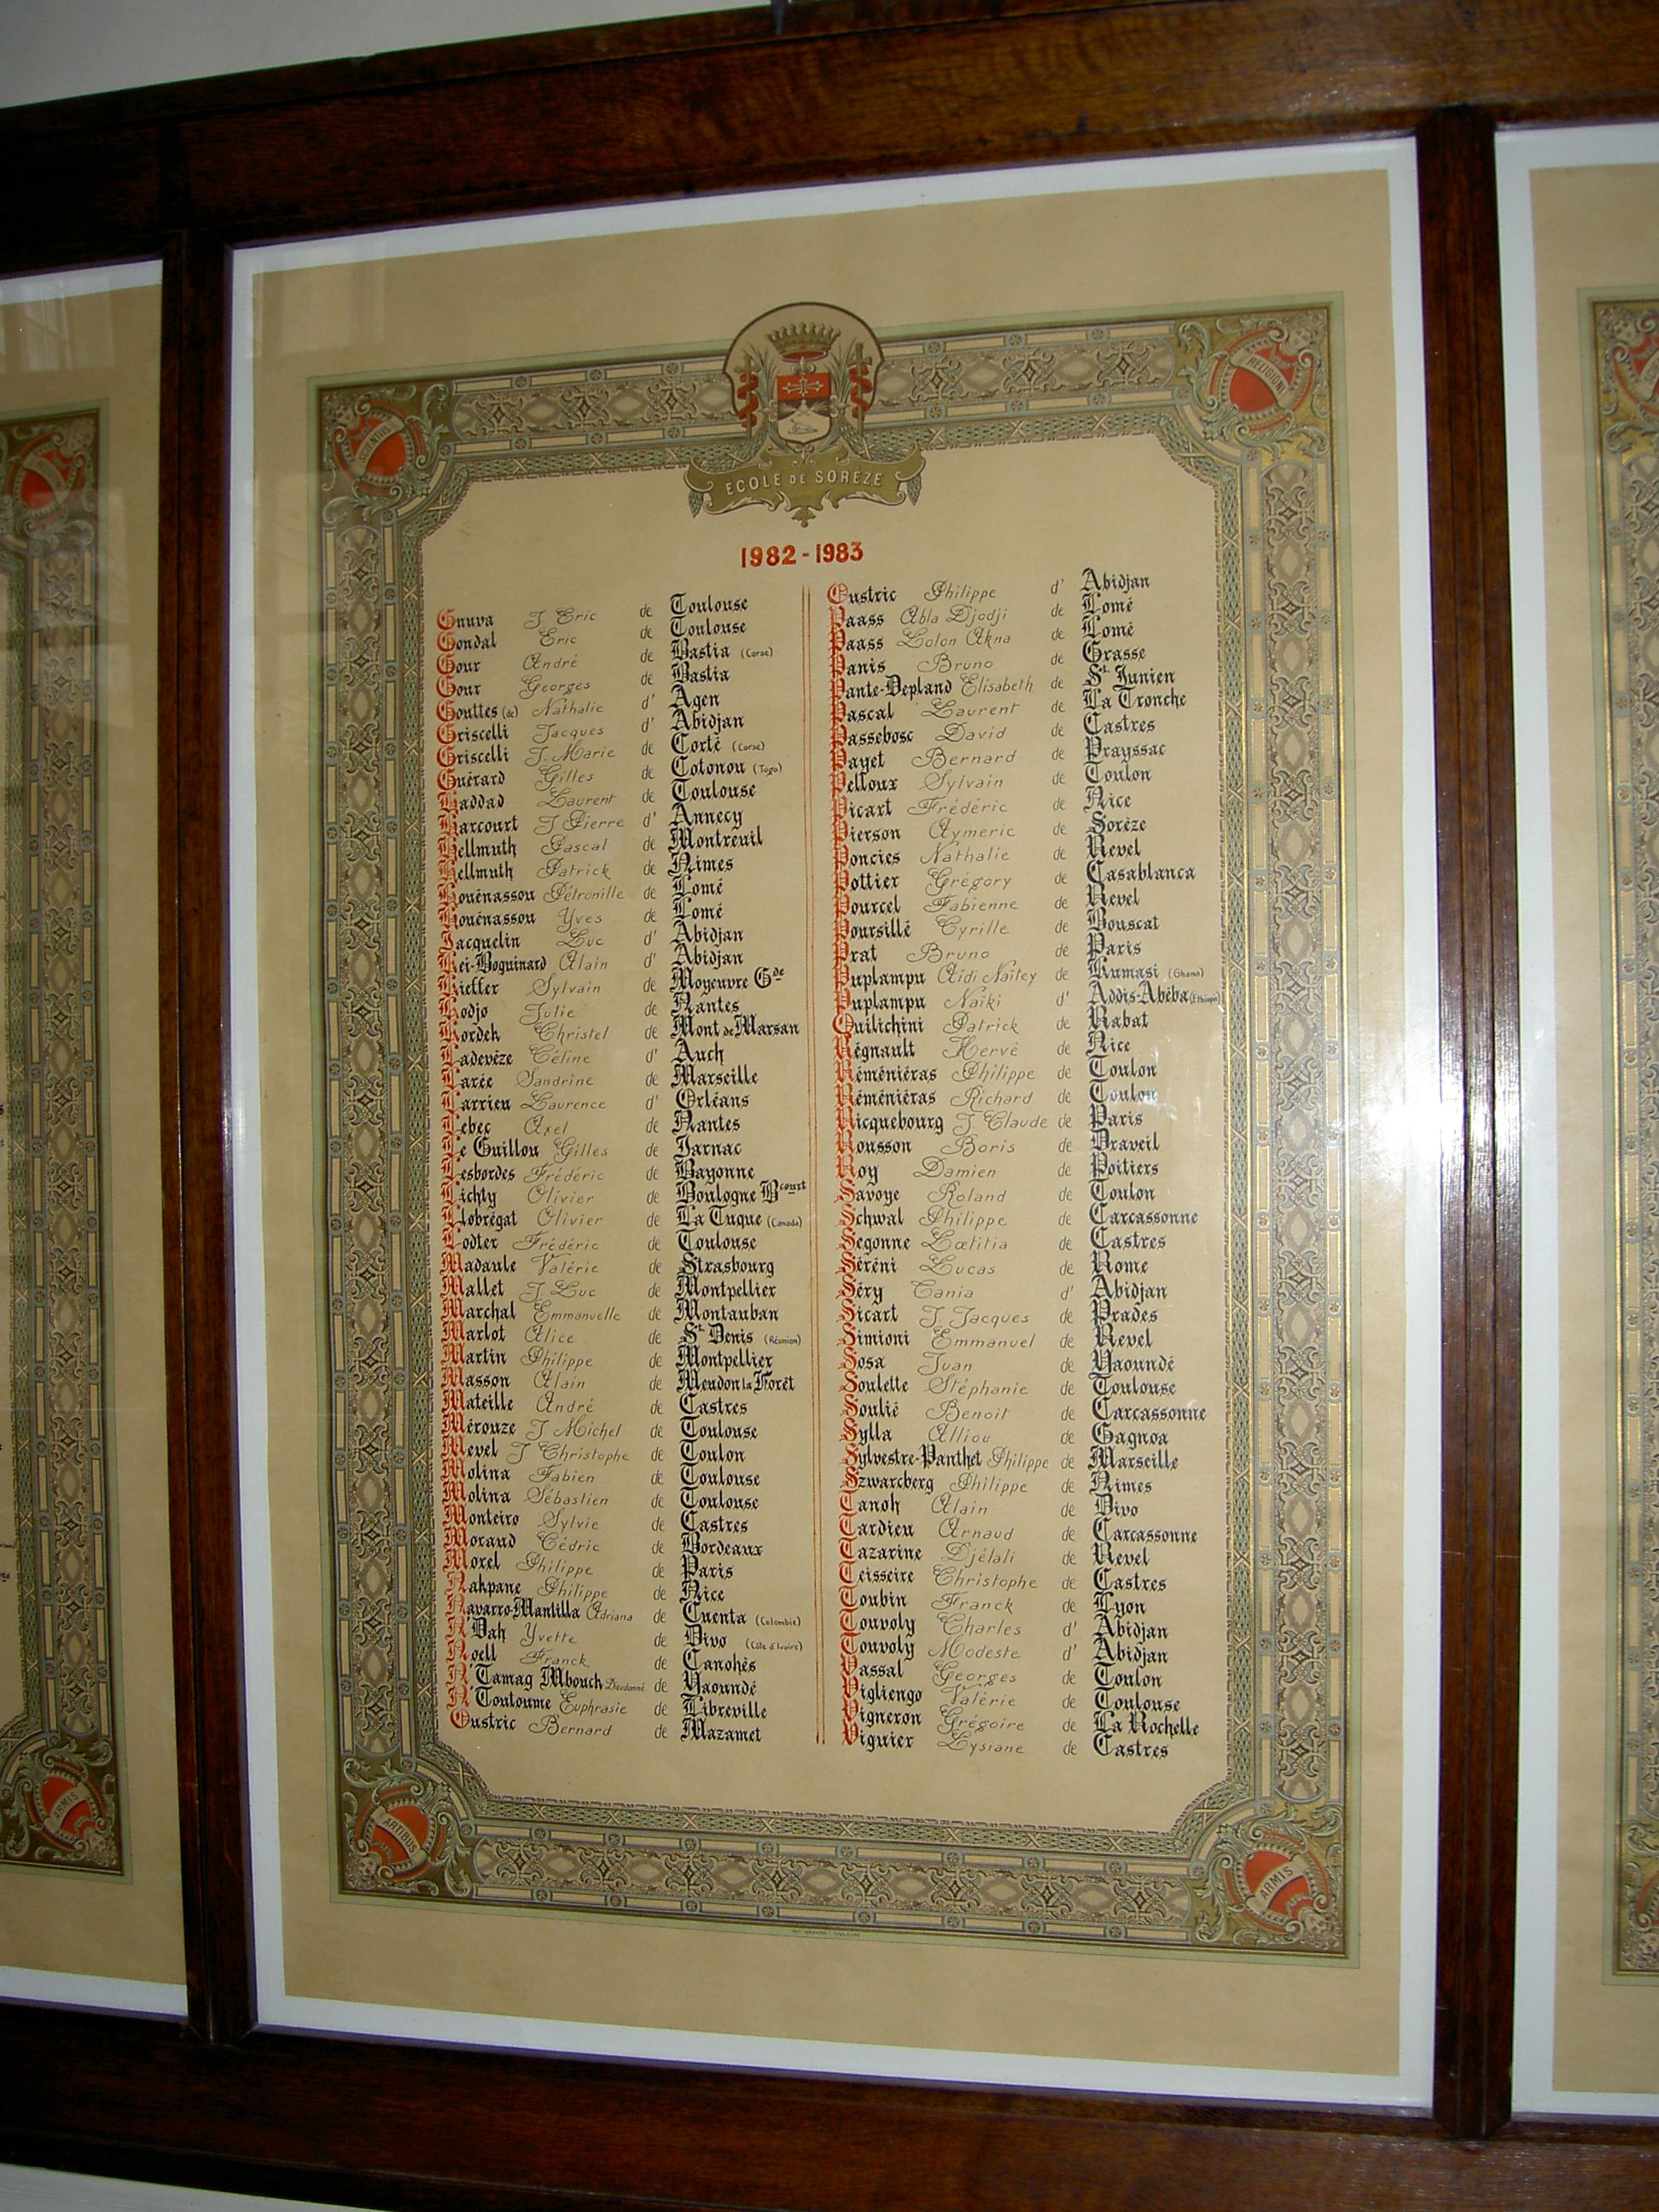 SCIENTIIS
RELIGIONI
ECOLE DE SORÈZE
1982-1983
Gnuva J. Eric de Toulouse
Gondal Eric de Toulouse
Gour André de Bastia (Corse)
Gour Georges de Bastia
Gouttes (de) Nathalie d' Agen
Griscelli Jacques d' Abidjan
Griscelli J. Marie de Corté (Corse)
Guérard Gilles de Cotonou (Togo)
Haddad Laurent de Toulouse
Harcourt J Pierre d' Annecy
Hellmuth Pascal de Montreuil
Hellmuth Patrick de Nimes
Houénassou Pétronille de Lomé
Houénassou Yves de Lomé
Jacquelin Luc d' Abidjan
Kei-Boguinard Alain d' Abidjan
Kieffer Sylvain de Moyeuvre Gde
Kodjo Julie de Nantes
Kordeh Christel de Mont de Marsan
Ladevèze Céline d' Auch
Larée Sandrine de Marseille
Larrieu Laurence d' Orléans
Lebec Axel de Nantes
Le Guillou Gilles de Jarnac
Lesbordes Frédéric de Bayonne
Lichty Olivier de Boulogne Bcourt
Llobrégat Olivier de La Tuque (Canada)
Lodter Frédéric de Toulouse
Madaule Valérie de Strasbourg
Mallet J. Luc de Montpellier
Marchal Emmanuelle de Montauban
Marlot Alice de St Denis (Réunion)
Martin Philippe de Montpellier
Masson Alain de Meudon la Forêt
Mateille André de Castres
Mérouze J Michel de Toulouse
Mevel J Christophe de Toulon
Molina Fabien de Toulouse
Molina Sébastien de Toulouse
Monteiro Sylvie de Castres
Morand Cédric de Bordeaux
Morel Philippe de Paris
Nakpane Philippe de Nice
Navarro-Mantilla Adriana de Cuenta (Colombie)
N'Dah Yvette de Divo (Côte d'Ivoire)
Noell Franck de Canohès
N'Tamag Mbouch Dieudonné de Yaoundé
N'Toutoume Euphrasie de Libreville
Oustric Bernard de Mazamet
Oustric Philippe d' Abidjan
Paass Abla Djodji de Lomé
Paass Lolon Akna de Lomé
Panis Bruno de Grasse
Pante-Depland Elisabeth de St Junien
Pascal Laurent de La Tronche
Passebosc David de Castres
Payet Bernard de Prayssac
Pelloux Sylvain de Toulon
Picart Frédéric de Nice
Pierson Aymeric de Sorèze
Poncies Nathalie de Revel
Pottier Grégory de Casablanca
Pourcel Fabienne de Revel
Poursillé Cyrille de Bouscat
Prat Bruno de Paris
Puplampu Aidi Naïtey de Kumasi (Ghana)
Puplampu Naïki d' Addis-Abéba (Ethiopie)
Quilichini Patrick de Rabat
Régnault Hervé de Nice
Réméniéras Philippe de Toulon
Réméniéras Richard de Toulon
Ricquebourg J Claude de Paris
Rousson Boris de Draveil
Roy Damien de Poitiers
Savoye Roland de Toulon
Schwal Philippe de Carcassonne
Segonne Lœtitia de Castres
Séréni Lucas de Rome
Séry Tania d' Abidjan
Sicart J. Jacques de Prades
Simioni Emmanuel de Revel
Sosa Juan de Yaoundé
Soulette Stéphanie de Toulouse
Soulié Benoit de Carcassonne
Sylla Alliou de Gagnoa
Sylvestre-Panthet Philippe de Marseille
Szwarcberg Philippe de Nimes
Tanoh Alain de Divo
Tardieu Arnaud de Carcassonne
Tazarine Djélali de Revel
Teisseire Christophe de Castres
Toubin Franck de Lyon
Touvoly Charles d' Abidjan
Touvoly Modeste d' Abidjan
Vassal Georges de Toulon
Vigliengo Valérie de Toulouse
Vigneron Grégoire de La Rochelle
Viguier Lysiane de Castres
ARTIBUS
ARMIS
ARMIS